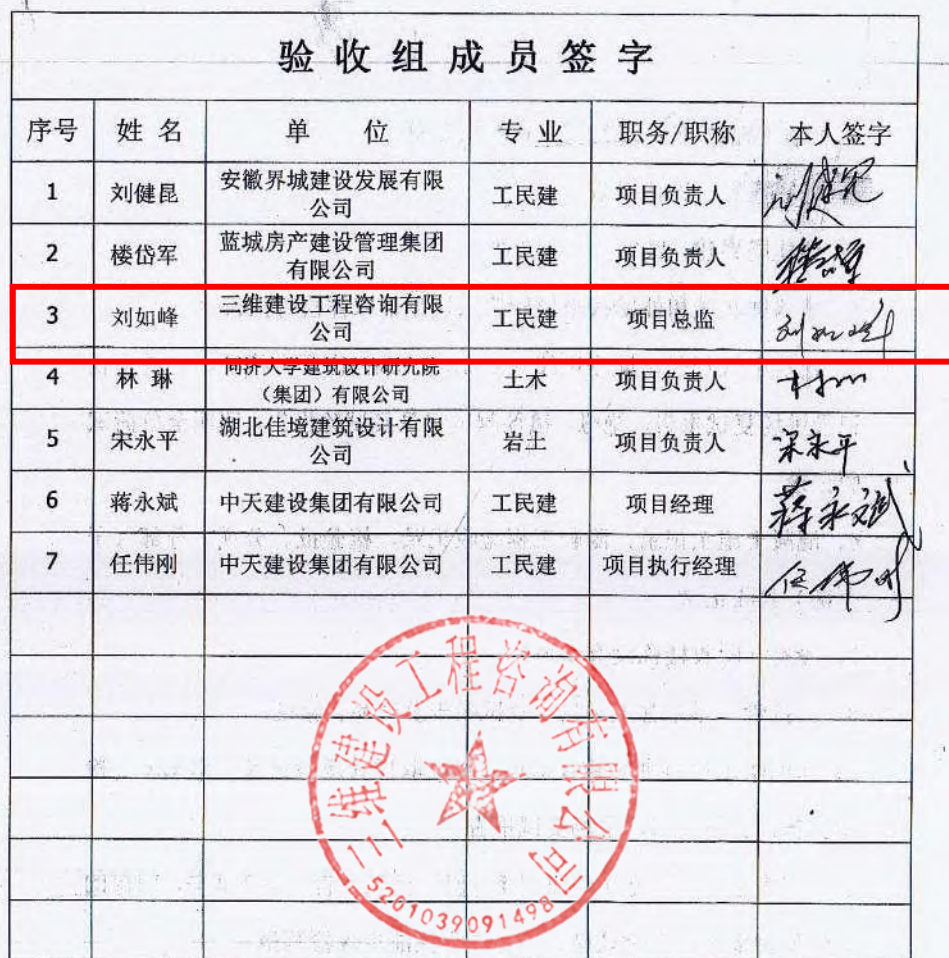 验收组成员签字
序号 姓名 单位 专业 职务/职称 本人签字
1 刘健昆 安徽界城建设发展有限公司 工民建 项目负责人
2 楼岱军 蓝城房产建设管理集团有限公司 工民建 项目负责人 楼岱军
3 刘如峰 三维建设工程咨询有限公司 工民建 项目总监 刘如峰
4 林琳 同济大学建筑设计研究院（集团）有限公司 土木 项目负责人
5 宋永平 湖北佳境建筑设计有限公司 岩土 项目负责人 宋永平
6 蒋永斌 中天建设集团有限公司 工民建 项目经理 蒋永斌
7 任伟刚 中天建设集团有限公司 工民建 项目执行经理 任伟刚
三维建设工程咨询有限公司
5201039091498